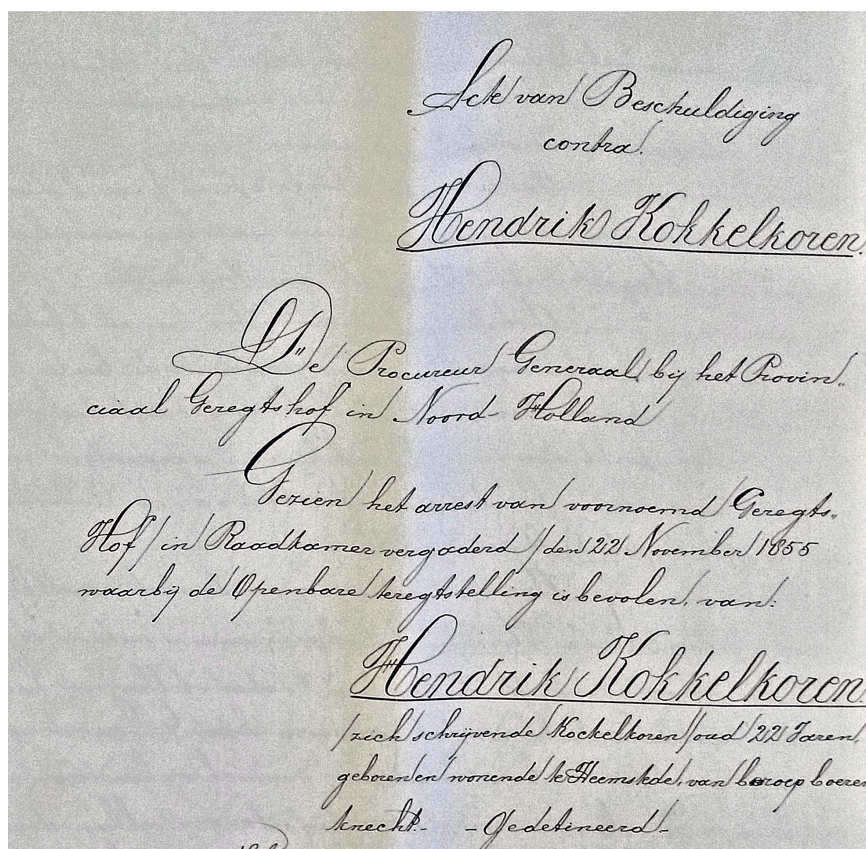 Acte van Beschuldiging
contra.
Hendrik Kokkelkoren.
De Procureur Generaal bij het Provin„
ciaal Geregtshof in Noord-Holland
Gezien het arrest van voornoemd Geregts„
Hof / in Raadkamer vergaderd / den 22 November 1855
waarbij de Openbare teregtstelling is bevolen, van:
Hendrik Kokkelkoren.
/ zich schrijvende Kockelkoren / oud 22 Jaren,
geboren en wonende te Heemstede, van beroep boeren
knecht. - - Gedetineerd -